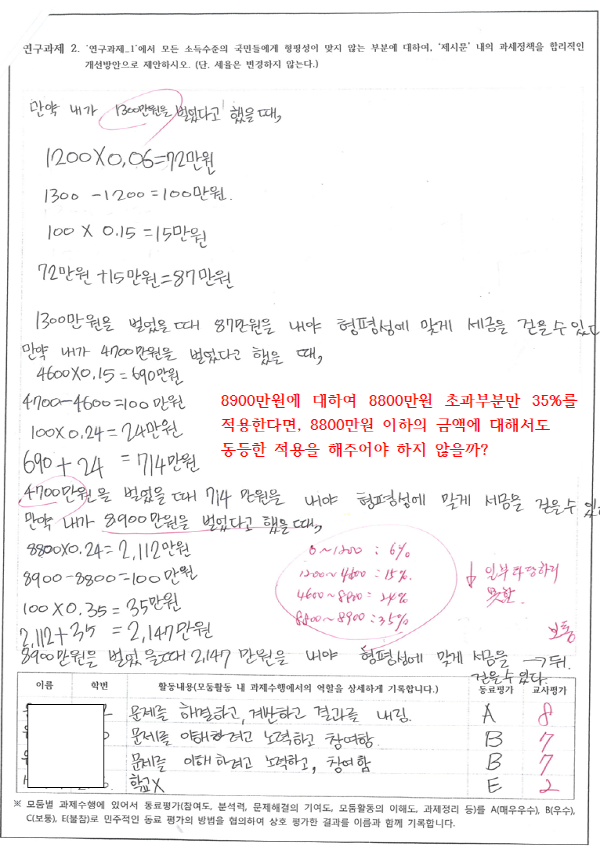 연구과제 2. '연구과제_1'에서 모든 소득수준의 국민들에게 형평성이 맞지 않는 부분에 대하여, '제시문' 내의 과세정책을 합리적인
개선방안으로 제안하시오. (단. 세율은 변경하지 않는다.)
만약 내가 1300만원을 벌었다고 했을때,
1200X0,06=72만원
1300 -1200=100만원.
100 X 0.15 =15만원
72만원 +15만원=87만원
1300만원을 벌었을때 87만원을 내야 형평성에 맞게 세금을 걷을수있다
만약 내가 4700만원을 벌었다고 했을 때,
4600X0.15=690만원
4700-4600=100만원
100X0.24=24만원
690+24 =714만원
8900만원에 대하여 8800만원 초과부분만 35%를
적용한다면, 8800만원 이하의 금액에 대해서도
동등한 적용을 해주어야 하지 않을까?
4700만원을 벌었을때 714만원을 내야 형평성에 맞게 세금을 걷을수있
만약 내가 8900만원을 벌었다고 했을때,
8800X0.24=2,112만원
8900-8800=100만원
100X0.35=35만원
2,112+35 =2,147만원
0~1200 : 6%
1200~4600 : 15%.
4600~8800 : 24%
8800~8900 : 35%
↓ 일부 타당하지
못함.
보통
8900만원을 벌었을때 2,147만원을 내야 형평성에 맞게 세금을 →뒤.
걷을수있다.
이름 학번 활동내용(모둠활동 내 과제수행에서의 역할을 상세하게 기록합니다.) 동료평가 교사평가
문제를 해결하고, 계산하고 결과를 내림. A 8
문제를 이해하려고 노력하고 참여함. B 7
문제를 이해하려고 노력하고, 참여함 B 7
학교X E 2
※ 모둠별 과제수행에 있어서 동료평가(참여도, 분석력, 문제해결의 기여도, 모둠활동의 이해도, 과제정리 등)를 A(매우우수), B(우수),
C(보통), E(불참)로 민주적인 동료 평가의 방법을 협의하여 상호 평가한 결과를 이름과 함께 기록합니다.